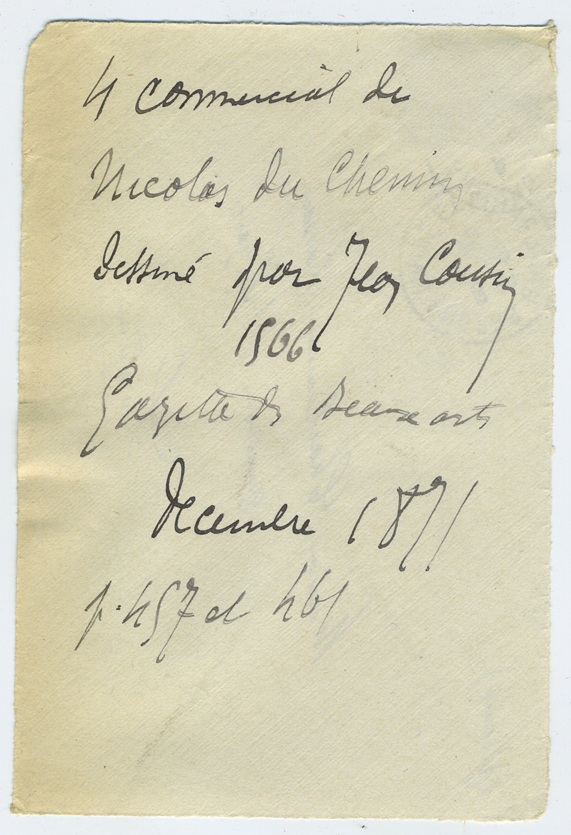 4 commercial de
Nicolas du Chemin
dessiné par Jean Cousin
1566
Gazette des Beaux arts
Decembre 1871
p. 457 et 461